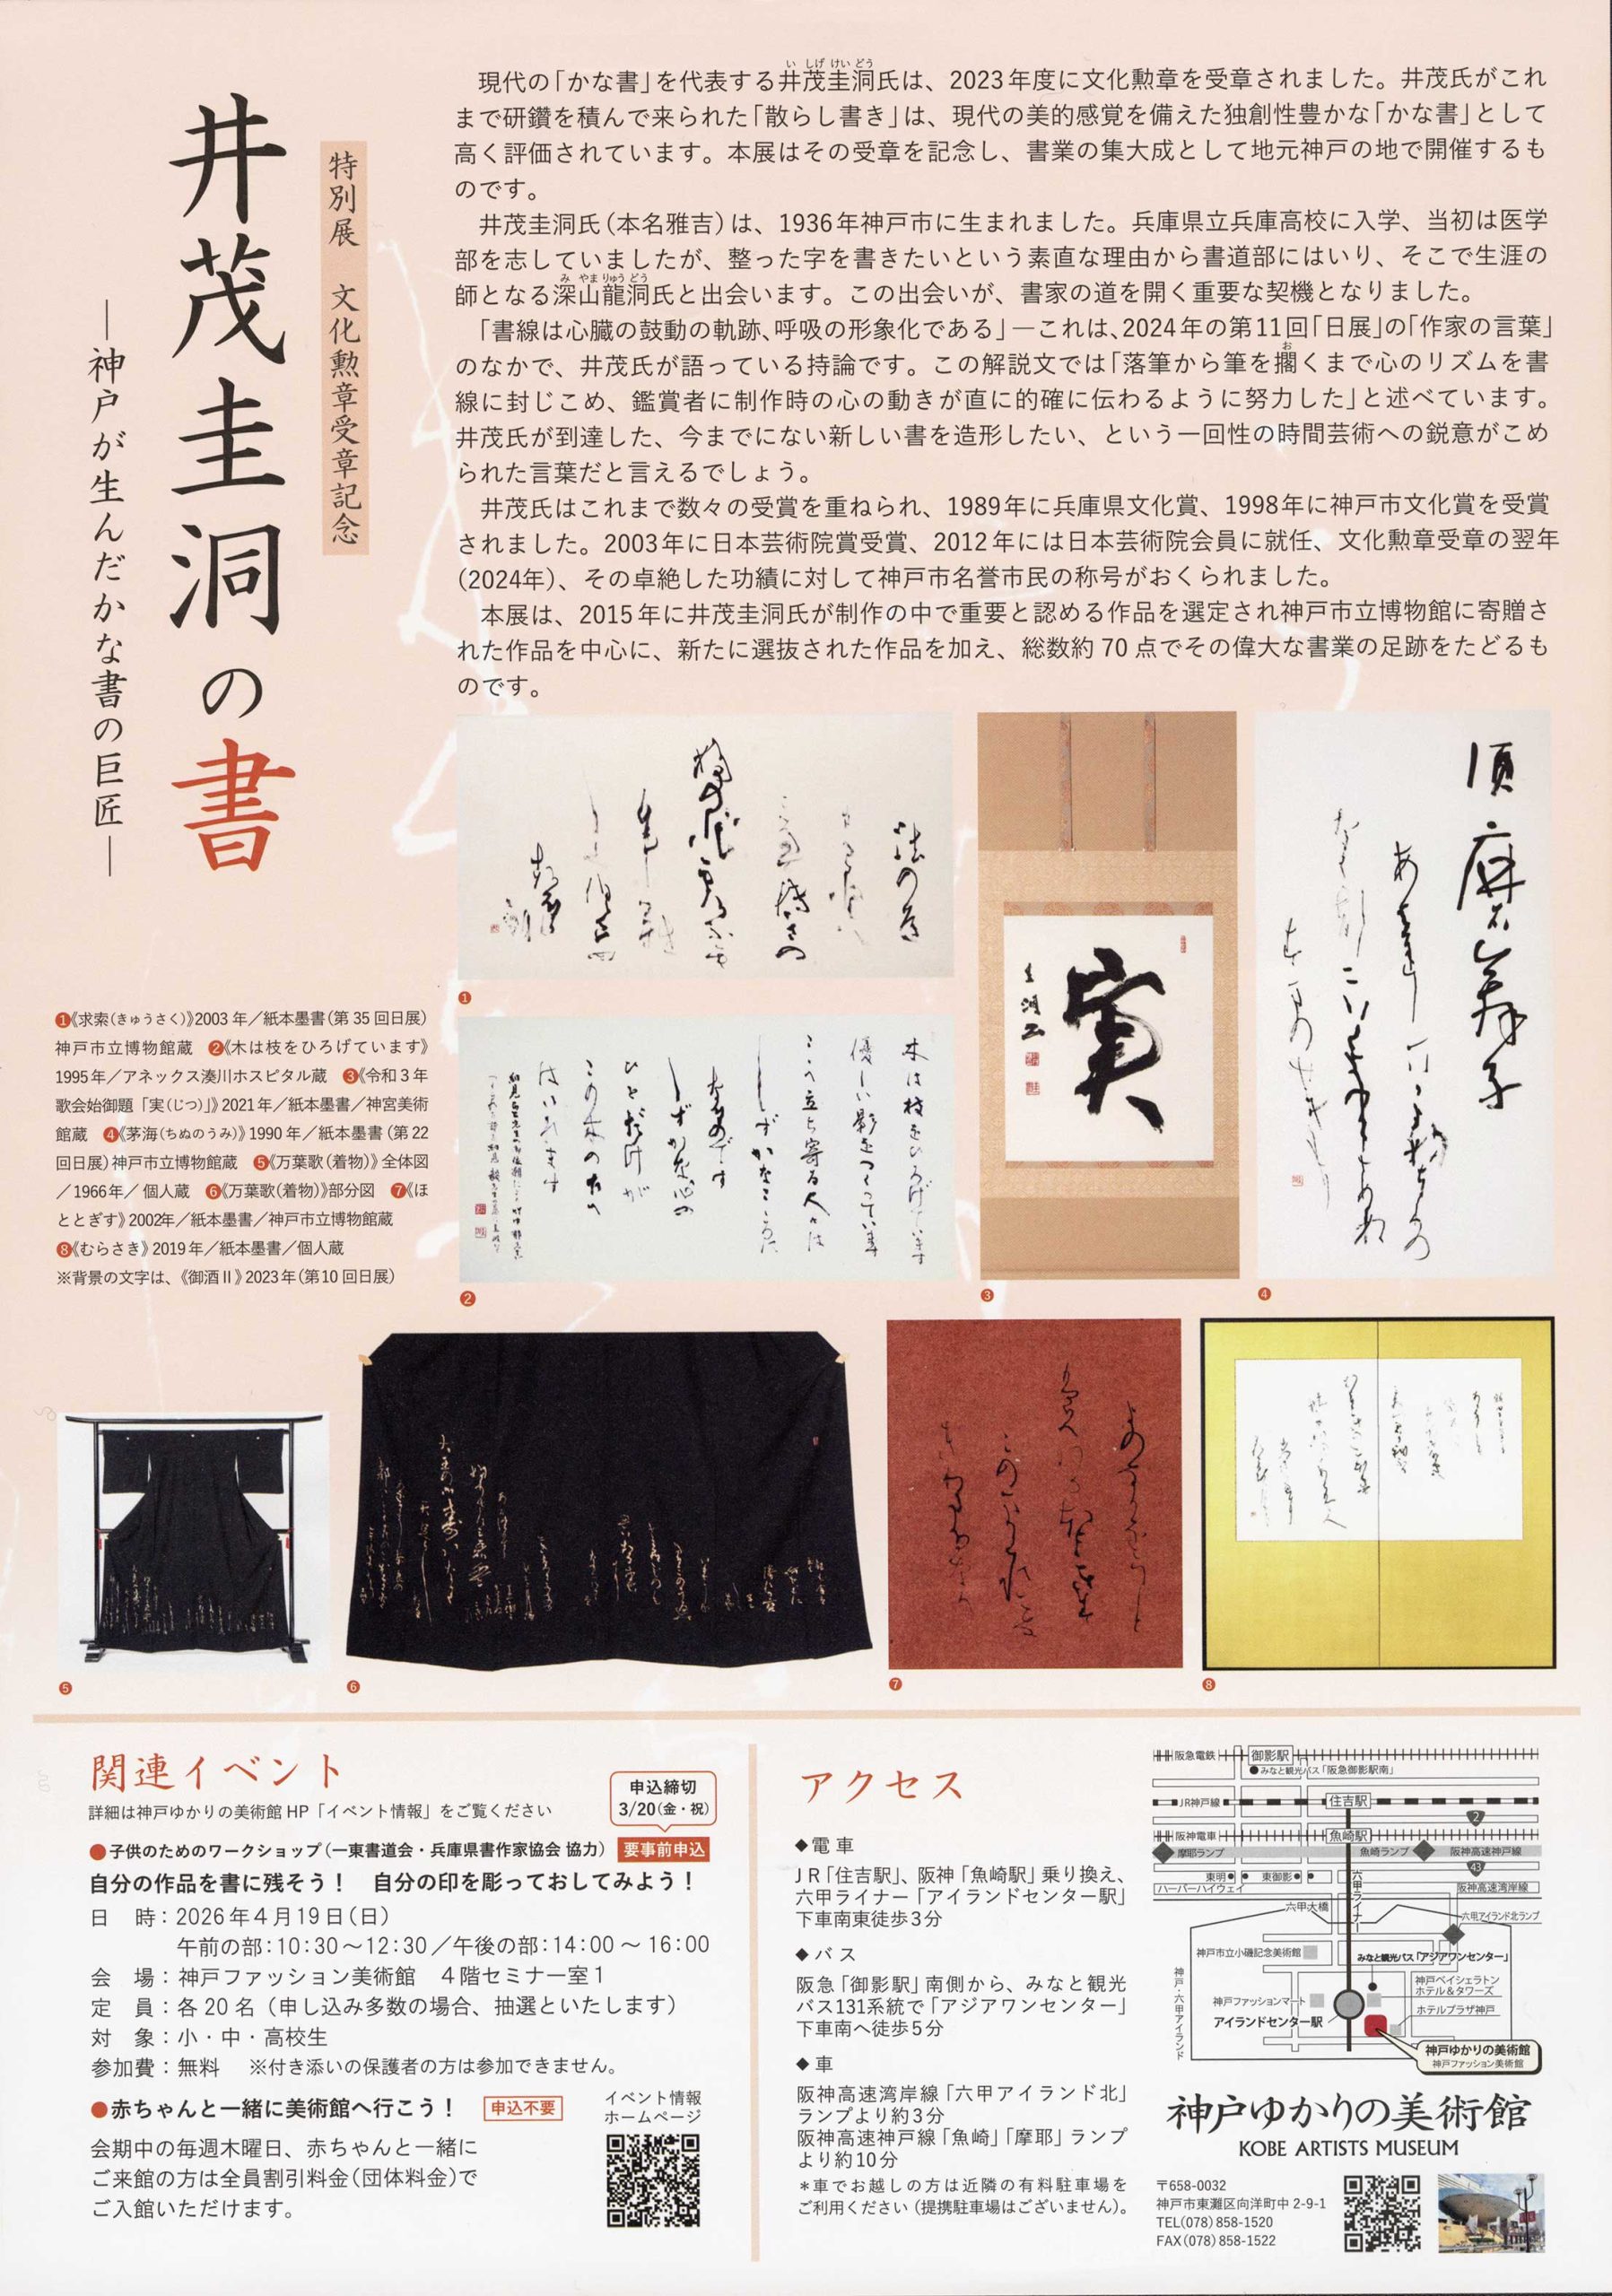 特別展　文化勲章受章記念
井茂圭洞の書
―神戸が生んだかな書の巨匠―
い しげ けい どう
現代の「かな書」を代表する井茂圭洞氏は、2023年度に文化勲章を受章されました。井茂氏がこれ
まで研鑽を積んで来られた「散らし書き」は、現代の美的感覚を備えた独創性豊かな「かな書」として
高く評価されています。本展はその受章を記念し、書業の集大成として地元神戸の地で開催するも
のです。
井茂圭洞氏（本名雅吉）は、1936年神戸市に生まれました。兵庫県立兵庫高校に入学、当初は医学
部を志していましたが、整った字を書きたいという素直な理由から書道部にはいり、そこで生涯の
み やま りゅう どう
師となる深山龍洞氏と出会います。この出会いが、書家の道を開く重要な契機となりました。
「書線は心臓の鼓動の軌跡、呼吸の形象化である」―これは、2024年の第11回「日展」の「作家の言葉」
お
のなかで、井茂氏が語っている持論です。この解説文では「落筆から筆を擱くまで心のリズムを書
線に封じこめ、鑑賞者に制作時の心の動きが直に的確に伝わるように努力した」と述べています。
井茂氏が到達した、今までにない新しい書を造形したい、という一回性の時間芸術への鋭意がこめ
られた言葉だと言えるでしょう。
井茂氏はこれまで数々の受賞を重ねられ、1989年に兵庫県文化賞、1998年に神戸市文化賞を受賞
されました。2003年に日本芸術院賞受賞、2012年には日本芸術院会員に就任、文化勲章受章の翌年
(2024年)、その卓絶した功績に対して神戸市名誉市民の称号がおくられました。
本展は、2015年に井茂圭洞氏が制作の中で重要と認める作品を選定され神戸市立博物館に寄贈さ
れた作品を中心に、新たに選抜された作品を加え、総数約70点でその偉大な書業の足跡をたどるも
のです。
❶《求索（きゅうさく）》2003年／紙本墨書（第35回日展）
神戸市立博物館蔵　❷《木は枝をひろげています》
1995年／アネックス湊川ホスピタル蔵　❸《令和3年
歌会始御題「実（じつ）」》2021年／紙本墨書／神宮美術
館蔵　❹《茅海（ちぬのうみ）》1990年／紙本墨書（第22
回日展）神戸市立博物館蔵　❺《万葉歌（着物）》全体図
／1966年／個人蔵　❻《万葉歌（着物）》部分図　❼《ほ
ととぎす》2002年／紙本墨書／神戸市立博物館蔵
❽《むらさき》2019年／紙本墨書／個人蔵
※背景の文字は、《御酒Ⅱ》2023年（第10回日展）
❶
木は枝をひろげています
優しい影をつくっています
❷
実
❸
❹
❺
❻
❼
❽
関連イベント
詳細は神戸ゆかりの美術館HP「イベント情報」をご覧ください
申込締切
3/20（金・祝）
●子供のためのワークショップ（一東書道会・兵庫県書作家協会 協力）　要事前申込
自分の作品を書に残そう！　自分の印を彫っておしてみよう！
日　時：2026年4月19日（日）
午前の部：10：30～12：30／午後の部：14：00～16：00
会　場：神戸ファッション美術館　4階セミナー室1
定　員：各20名（申し込み多数の場合、抽選といたします）
対　象：小・中・高校生
参加費：無料　※付き添いの保護者の方は参加できません。
●赤ちゃんと一緒に美術館へ行こう！　申込不要
会期中の毎週木曜日、赤ちゃんと一緒に
ご来館の方は全員割引料金（団体料金）で
ご入館いただけます。
イベント情報
ホームページ
アクセス
◆電車
JR「住吉駅」、阪神「魚崎駅」乗り換え、
六甲ライナー「アイランドセンター駅」
下車南東徒歩3分
◆バス
阪急「御影駅」南側から、みなと観光
バス131系統で「アジアワンセンター」
下車南へ徒歩5分
◆車
阪神高速湾岸線「六甲アイランド北」
ランプより約3分
阪神高速神戸線「魚崎」「摩耶」ランプ
より約10分
＊車でお越しの方は近隣の有料駐車場を
ご利用ください（提携駐車場はございません）。
阪急電鉄
御影駅
●みなと観光バス「阪急御影駅南」
JR神戸線
住吉駅
2
阪神電車
魚崎駅
摩耶ランプ
魚崎ランプ
阪神高速神戸線
43
東明
東御影
ハーバーハイウェイ
六甲ライナー
阪神高速湾岸線
六甲大橋
六甲アイランド北ランプ
神戸市立小磯記念美術館
みなと観光バス「アジアワンセンター」
神戸・六甲アイランド
神戸ベイシェラトン
ホテル＆タワーズ
神戸ファッションマート
ホテルプラザ神戸
アイランドセンター駅
神戸ゆかりの美術館
神戸ファッション美術館
神戸ゆかりの美術館
KOBE ARTISTS MUSEUM
〒658-0032
神戸市東灘区向洋町中2-9-1
TEL(078)858-1520
FAX(078)858-1522